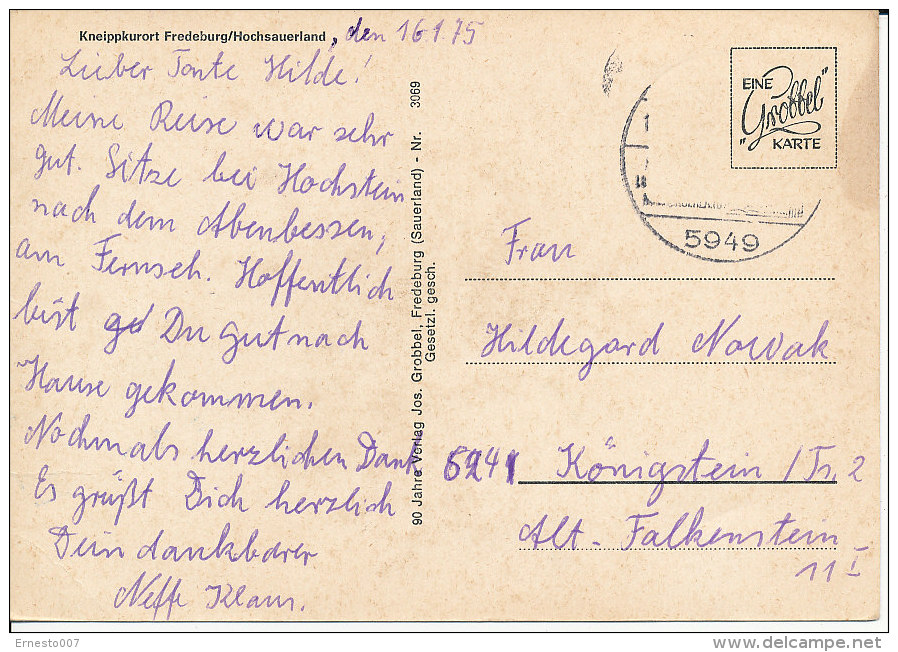 Kneippkurort Fredeburg/Hochsauerland, den 16.1.75
Lieber Tante Hilde!
Meine Reise war sehr
gut. Sitze bei Hochstein
nach dem Abenbessen,
am Fernseh. Hoffentlich
bist Du gut nach
Hause gekommen.
Nochmals herzlichen Dank
Es grüßt Dich herzlich
Dein dankbarer
Neffe Klaus.
90 Jahre Verlag Jos. Grobbel, Fredeburg (Sauerland) - Nr. 3069
Gesetzl. gesch.
EINE
"Grobbel"
KARTE
5949
Frau
Hildegard Nowak
6241 Königstein /Ts. 2
Alt-Falkenstein
11 I
Ernesto007
delcampe.net